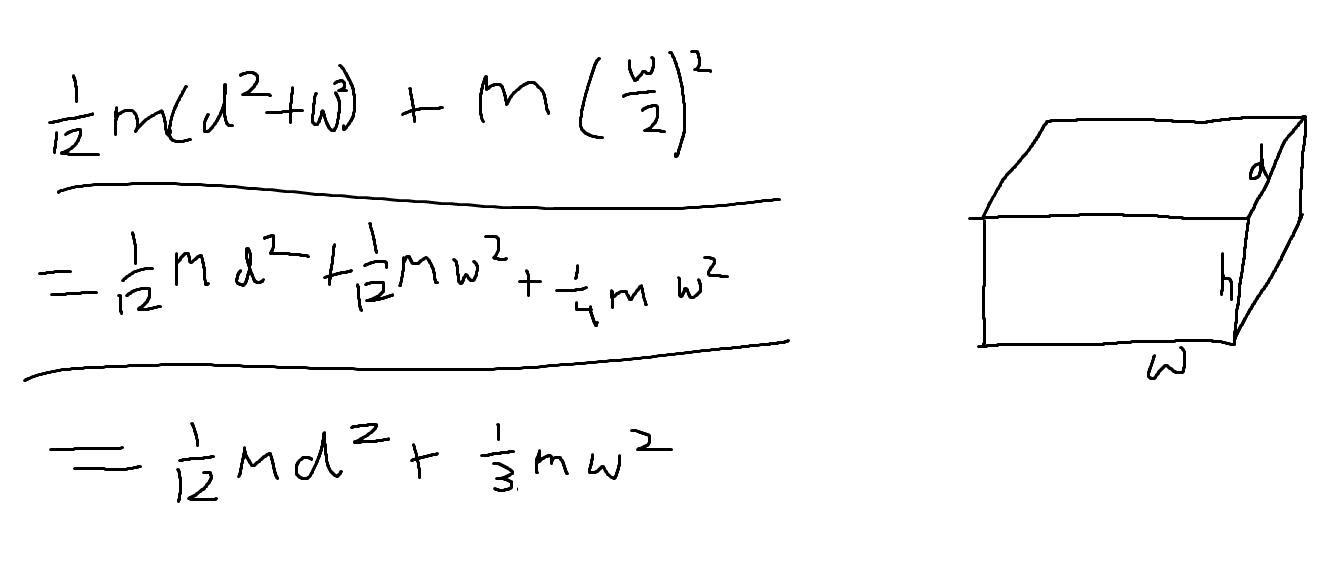 1/12 m(d²+w²) + m (w/2)²
= 1/12 m d² + 1/12 m w² + 1/4 m w²
= 1/12 m d² + 1/3 m w²
d
h
w